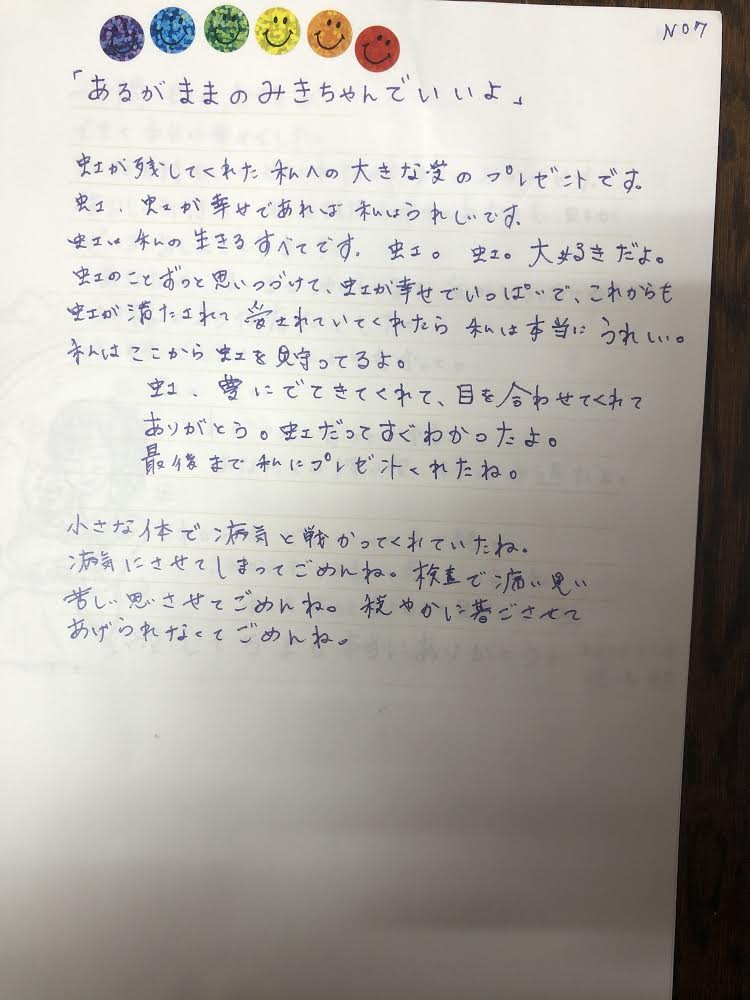 NO7
「あるがままのみきちゃんでいいよ」
虹が残してくれた 私への 大きな愛の プレゼントです。
虹、虹が幸せであれば 私はうれしいです。
虹は 私の生きるすべてです。 虹。 虹。 大好きだよ。
虹のことずっと思いつづけて、虹が幸せでいっぱいで、これからも
虹が満たされて 愛されていてくれたら 私は本当に うれしい。
私はここから 虹を見守ってるよ。
虹、夢にでてきてくれて、目を合わせてくれて
ありがとう。虹だってすぐわかったよ。
最後まで私にプレゼントくれたね。
小さな体で 病気と戦かってくれていたね。
病気にさせてしまってごめんね。検査で痛い思い
苦しい思させてごめんね。穏やかに過ごさせて
あげられなくてごめんね。